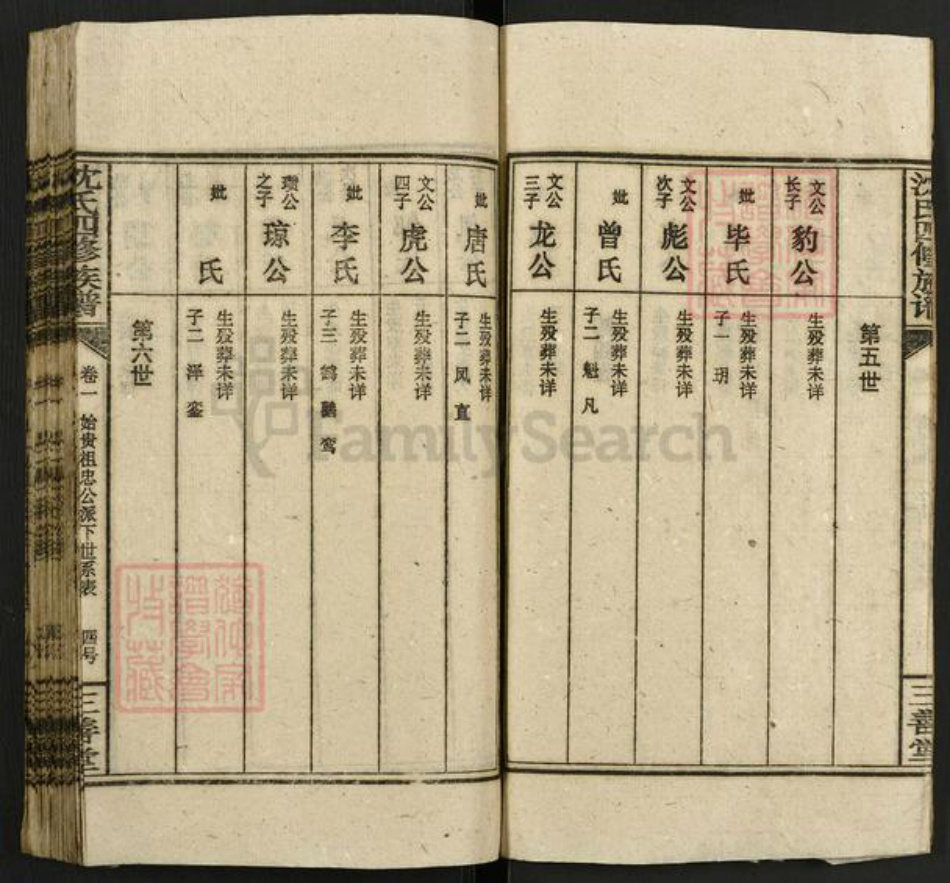 沈氏四修族谱
三善堂
第五世
文公长子 豹公 生殁葬未详
妣 毕氏 生殁葬未详
子一 玥
文公次子 彪公 生殁葬未详
妣 曾氏 生殁葬未详
子二 魁 凡
文公三子 龙公 生殁葬未详
妣 唐氏 生殁葬未详
子二 风 直
文公四子 虎公 生殁葬未详
妣 李氏 生殁葬未详
子三 鹤 鹏 鸾
瓒公之子 琼公 生殁葬未详
妣 氏 生殁葬未详
子二 泽 銮
第六世
沈氏四修族谱
卷一 始贵祖忠公派下世系表 四号
三善堂
FamilySearch